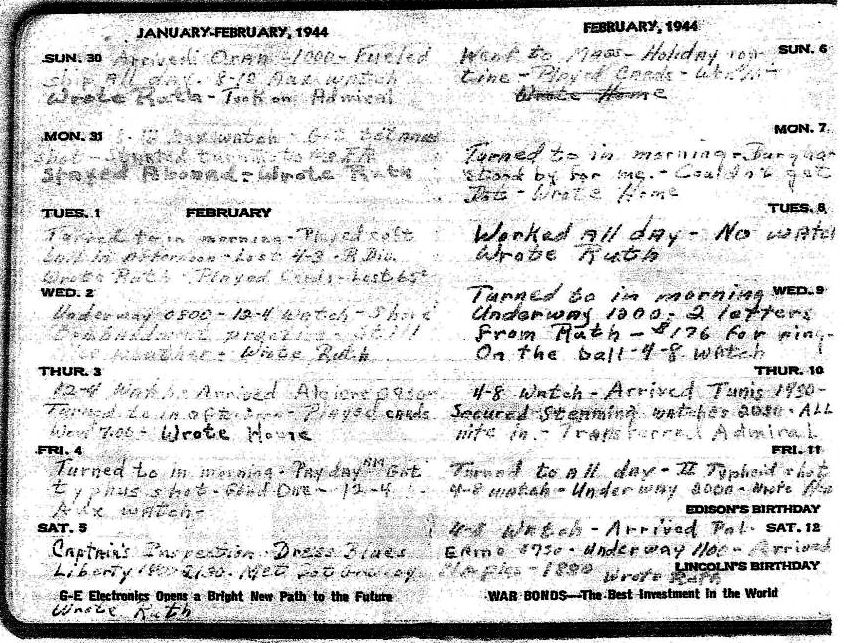 JANUARY-FEBRUARY, 1944
SUN. 30 Arrived Oran - 1000 - Fueled
ship All day. 8-12 Aux watch
Wrote Ruth - Took on Admiral
MON. 31 8-12 Aux watch - Got tetanus
shot - Started
Stayed Aboard - Wrote Ruth
TUES. 1 FEBRUARY
Turned to in morning - Played soft
ball in afternoon - Lost 4-3 - R Div.
Wrote Ruth - Played Cards - Lost
WED. 2
Underway 0800 - 12-4 watch - Shore
Bombardment practice - Still
weather - Wrote Ruth
THUR. 3
12-4 Watch - Arrived Algiers
Turned to in - Played cards
Won - Wrote Home
FRI. 4
Turned to in morning - Pay day AM Got
typhus shot - Good One - 12-4
Aux watch -
SAT. 5
Captain's Inspection - Dress Blues
Liberty - Met
G-E Electronics Opens a Bright New Path to the Future
Wrote Ruth
FEBRUARY, 1944
Went to Mass - Holiday rou- SUN. 6
tine - Played Cards -
Wrote Home
MON. 7
Turned to in morning -
stand by for me. - Couldn't get
- Wrote Home
TUES. 8
Worked All day - No watch
Wrote Ruth
Turned to in morning WED. 9
Underway 1200 - 2 letters
from Ruth - $176 for ring -
On the ball - 4-8 watch
THUR. 10
4-8 Watch - Arrived Tunis 1930 -
Secured Steaming watches 2030 - ALL
nite in. - Transferred Admiral
FRI. 11
Turned to All day - II Typhoid shot
4-8 watch - Underway 2000 - Wrote
EDISON'S BIRTHDAY
4-8 Watch - Arrived Pal- SAT. 12
ermo 0730 - Underway 1100 - Arrived
Naples - 1800 LINCOLN'S BIRTHDAY
Wrote Ruth
WAR BONDS—The Best Investment in the World